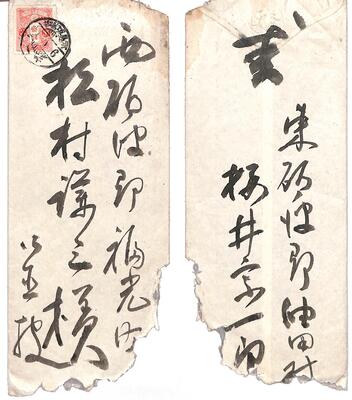 西砺波郡福光町
松村謙三様
御直披
東砺波郡油田村
桜井宗一郎